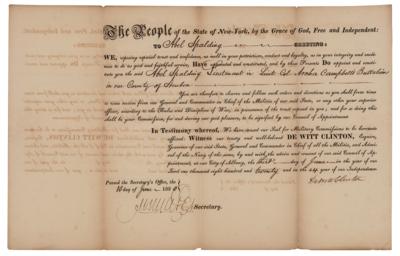 The People of the State of New-York, by the Grace of God, Free and Independent:
TO Abel Spalding GREETING:
WE, reposing especial trust and confidence, as well in your patriotism, conduct and loyalty, as in your integrity and readiness
to do us good and faithful service, Have appointed and constituted, and by these Presents Do appoint and consti-
tute you the said Abel Spalding Lieutenant in Lieut. Col. Campbell's Battalion
in our County of
You are therefore to observe and follow such orders and directions as you shall from time
to time receive from our General and Commander in Chief of the Militia of our said State, or any other your superior
officer, according to the Rules and Discipline of War, in pursuance of the trust reposed in you; and for so doing this
shall be your Commission, for and during our good pleasure, to be signified by our Council of Appointment.
In Testimony whereof, We have caused our Seal for Military Commissions to be hereunto
affixed: Witness our trusty and well-beloved DE WITT CLINTON, Esquire,
Governor of our said State, General and Commander in Chief of all the Militia, and Admi-
ral of the Navy of the same, by and with the advice and consent of our said Council of Appoint-
ment, at our City of Albany, the third day of June in the year of our
Lord one thousand eight hundred and twenty and in the 44 year of our Independence.
Passed the Secretary's Office, the
16 day of June 1820
De Witt Clinton
Secretary.